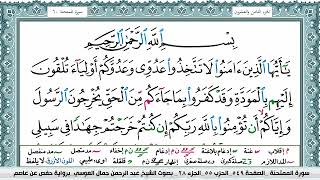 سورة الممتحنة ٦٠
الجزء الثامن والعشرون
بِسْمِ ٱللَّهِ ٱلرَّحْمَٰنِ ٱلرَّحِيمِ
يَٰٓأَيُّهَا ٱلَّذِينَ ءَامَنُوا۟ لَا تَتَّخِذُوا۟ عَدُوِّى وَعَدُوَّكُمْ أَوْلِيَآءَ تُلْقُونَ
إِلَيْهِم بِٱلْمَوَدَّةِ وَقَدْ كَفَرُوا۟ بِمَا جَآءَكُم مِّنَ ٱلْحَقِّ يُخْرِجُونَ ٱلرَّسُولَ
وَإِيَّاكُمْ أَن تُؤْمِنُوا۟ بِٱللَّهِ رَبِّكُمْ إِن كُنتُمْ خَرَجْتُمْ جِهَٰدًا فِى سَبِيلِى
سورة الممتحنة الصفحة ٥٤٩ الحزب ٥٥ الجزء ٢٨ بصوت الشيخ عبد الرحمن جمال العوسي برواية حفص عن عاصم